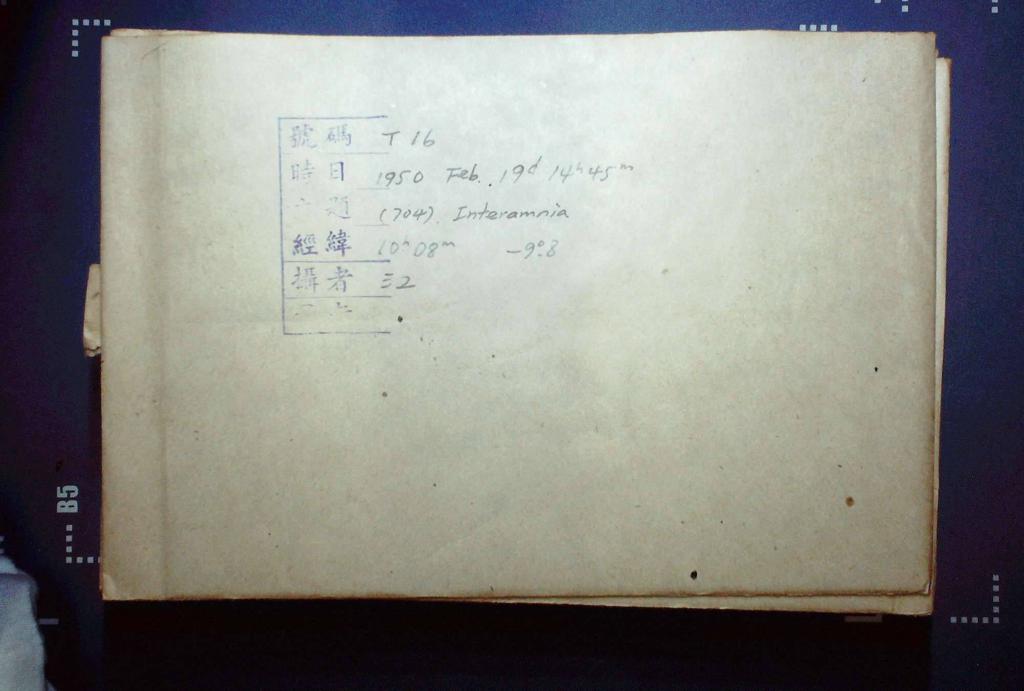 號碼 T 16
時日 1950 Feb. 19d 14h45m
題 (704) Interamnia
經緯 10h08m -9°.8
攝者
B5